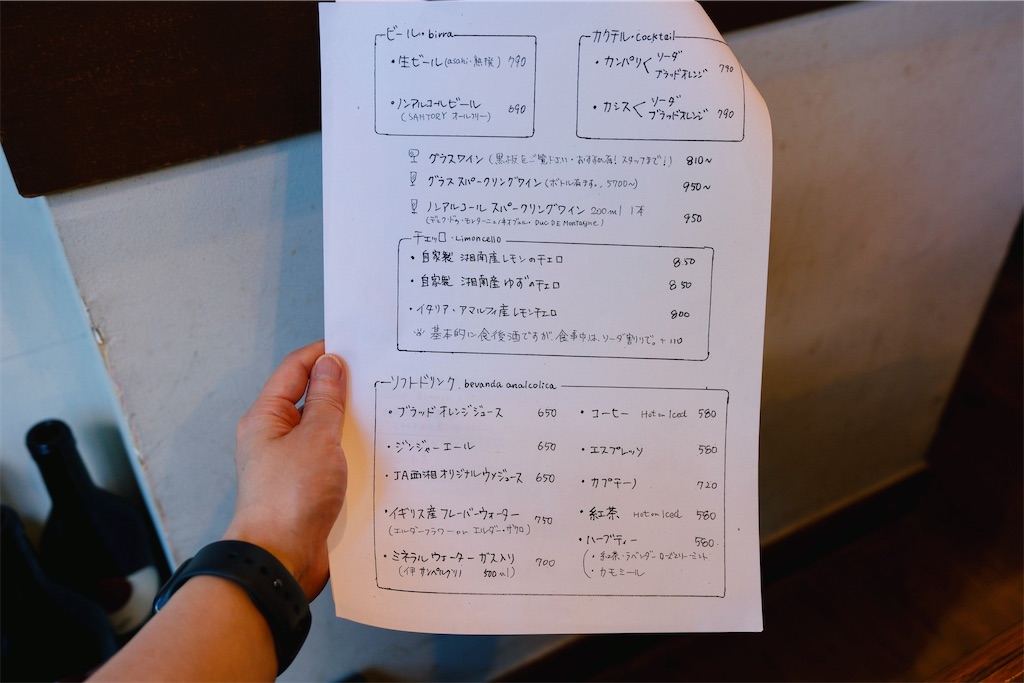 ビール・birra
・生ビール(asahi・熟撰) 790
・ノンアルコールビール 690
(SANTORY オールフリー)
カクテル・cocktail
・カンパリ< ソーダ 790
ブラッドオレンジ
・カシス< ソーダ 790
ブラッドオレンジ
グラスワイン(黒板をご覧下さい・おすすめ有! スタッフまで!) 810~
グラス スパークリングワイン(ボトル有ます。5700~) 950~
ノンアルコール スパークリングワイン 200ml 1本 950
(デュク・ドゥ・モンターニュ/ネオブュル・Duc DE Montagne)
チェッロ・Limoncello
・自家製 湘南産レモンのチェロ 850
・自家製 湘南産ゆずのチェロ 850
・イタリア・アマルフィ産レモンチェロ 800
※ 基本的に食後酒ですが、食事中は、ソーダ割りで。+110
ソフトドリンク・bevanda analcolica
・ブラッドオレンジジュース 650
・ジンジャーエール 650
・JA西湘オリジナル ジュース 650
・イギリス産フレーバーウォーター 750
(エルダーフラワー or エルダー・ザクロ)
・ミネラルウォーター ガス入り 700
(伊 サンペルグリノ 500ml)
・コーヒー Hot or Iced 580
・エスプレッソ 580
・カプチーノ 720
・紅茶 Hot or Iced 580
・ハーブティー 580
・紅茶・ラベンダー・ローズマリー・ミント
・カモミール